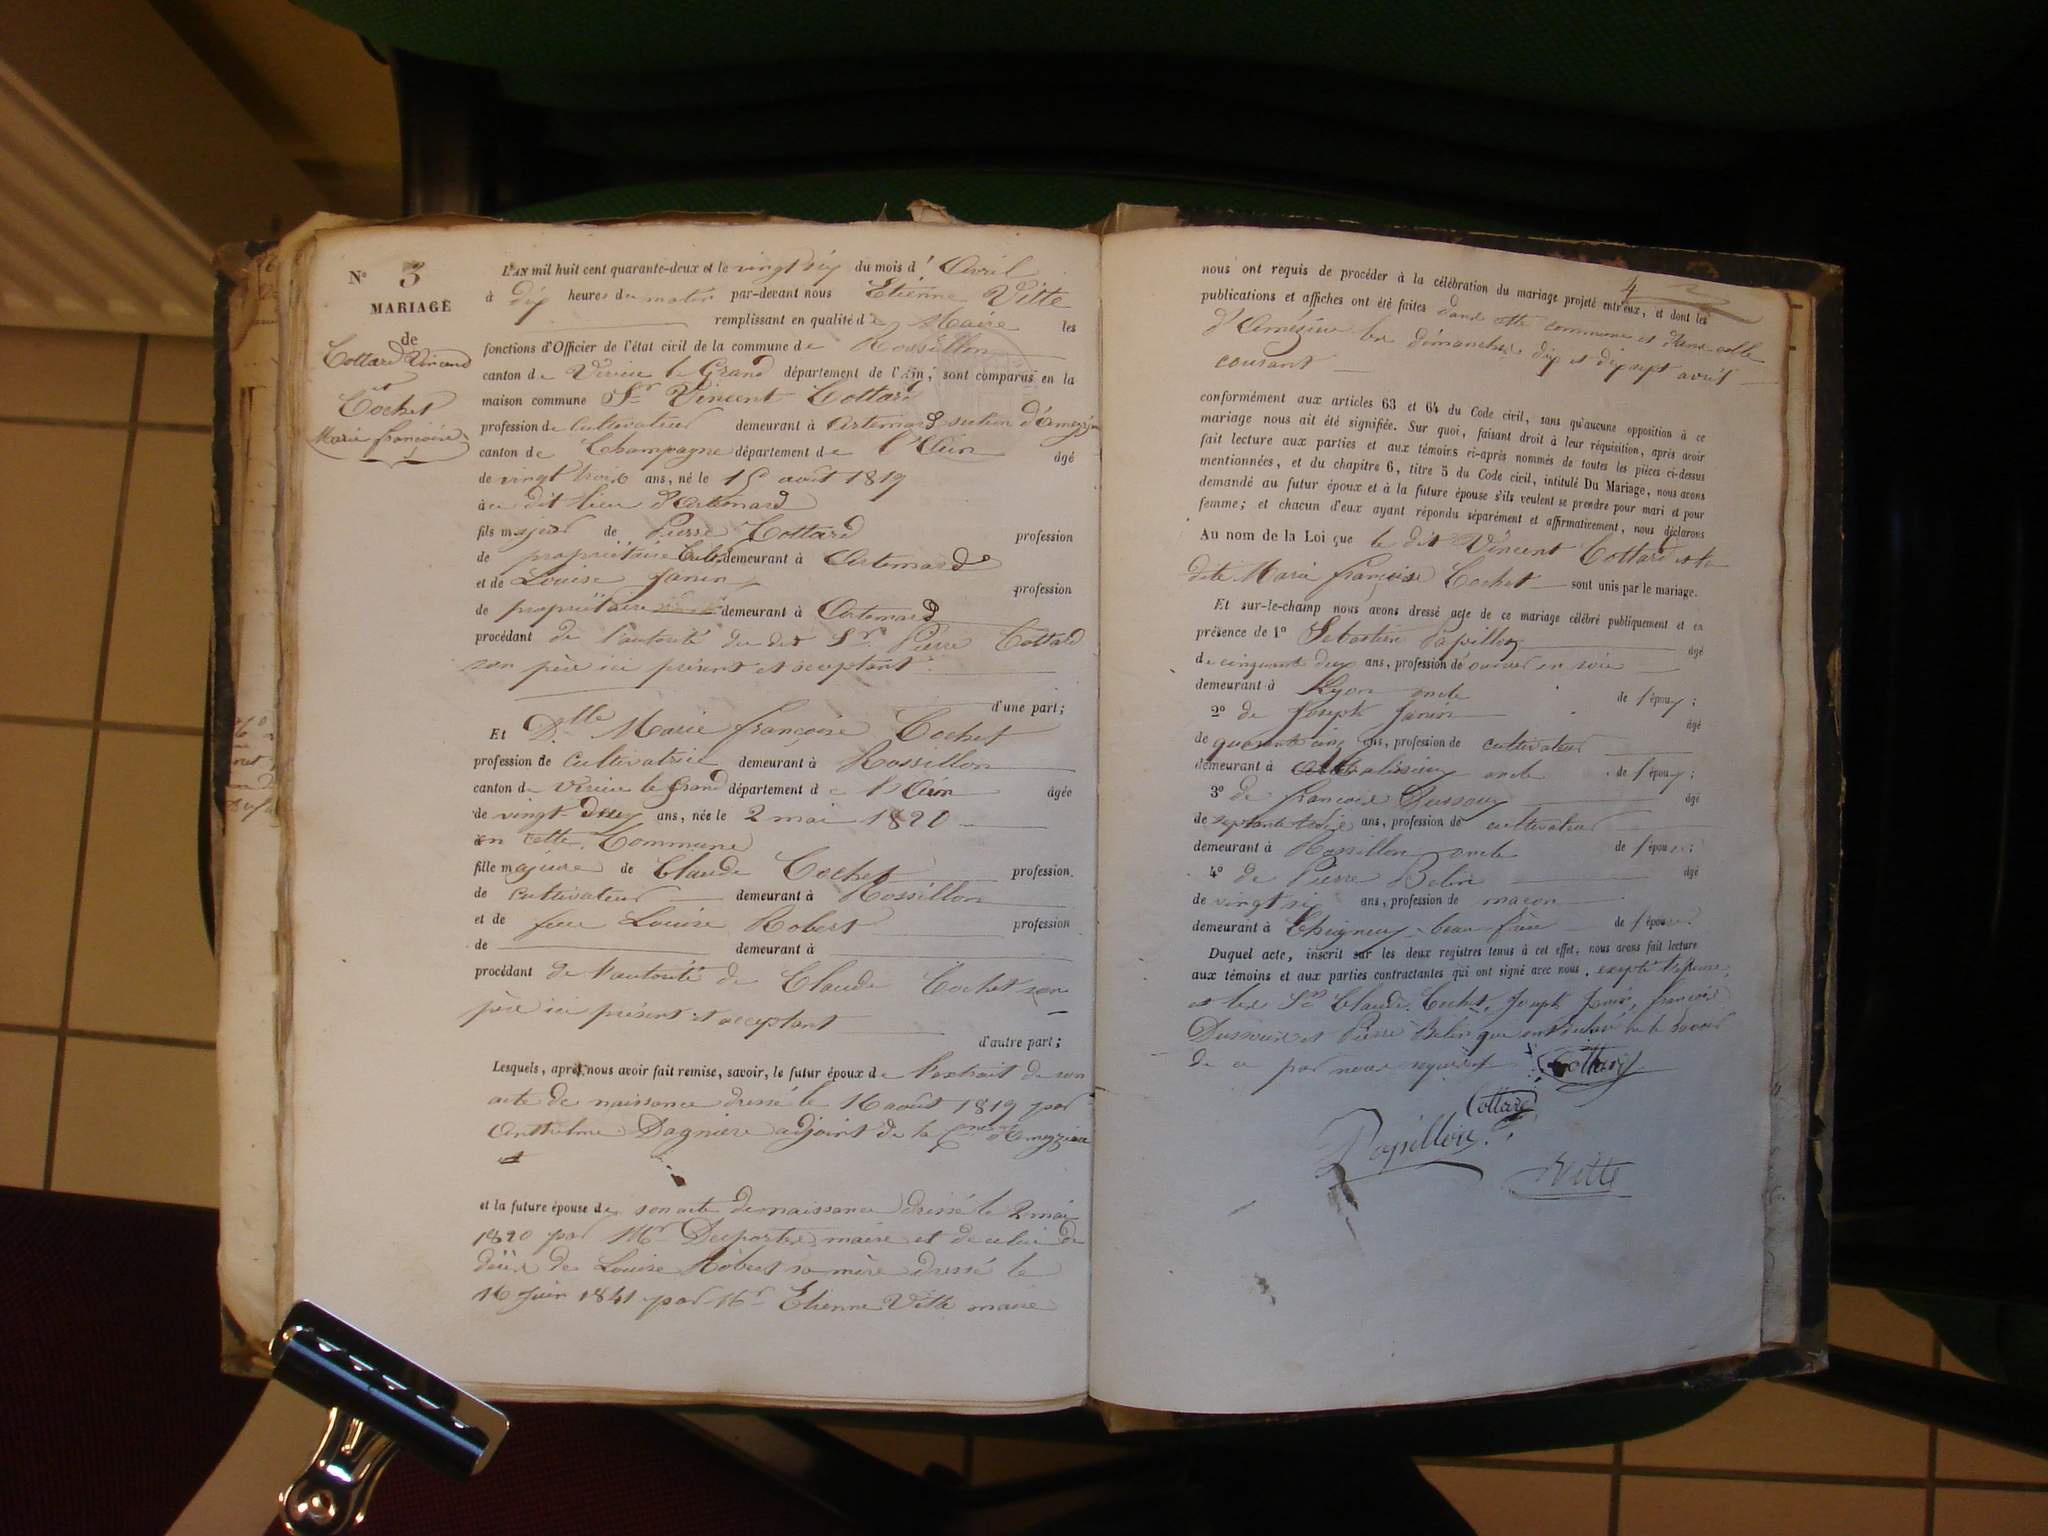 N° 3
MARIAGE
de
Cottard Vincent
et
Cochet
Marie françoise
L'AN mil huit cent quarante-deux et le vingt six du mois d' Avril
à dix heures du matin par-devant nous Etienne Vitte
remplissant en qualité de Maire les
fonctions d'Officier de l'état civil de la commune de Rossillon
canton de Virieu le Grand département de l'Ain, sont comparus en la
maison commune Sr Vincent Cottard
profession de cultivateur demeurant à Artemard section d'Amezieu
canton de Champagne département de l'Ain âgé
de vingt trois ans, né le 15 août 1819
à au dit lieu d'Artemard
fils majeur de Pierre Cottard profession
de propriétaire Cult. demeurant à Artemard
et de Louise Janin profession
de propriétaire demeurant à Artemard
procédant de l'autorité du dit Sr Pierre Cottard
son père ici présent et acceptant
d'une part;
Et Dlle Marie françoise Cochet
profession de cultivatrice demeurant à Rossillon
canton de Virieu le Grand département de l'Ain âgée
de vingt-deux ans, née le 2 mai 1820
en cette Commune
fille majeure de Claude Cochet profession
de cultivateur demeurant à Rossillon
et de feue Louise Robert profession
de demeurant à
procédant de l'autorité de Claude Cochet son
père ici présent et acceptant
d'autre part;
Lesquels, après nous avoir fait remise, savoir, le futur époux de l'extrait de son
acte de naissance dressé le 16 août 1819 par
Anthelme Dagniere adjoint de la Cne d'Amezieu
et
et la future épouse de son acte de naissance dressé le 2 mai
1820 par Mr Desportes maire et de celui de
décès de Louise Robert sa mère dressé le
16 juin 1841 par Mr Etienne Vitte maire
4
nous ont requis de procéder à la célébration du mariage projeté entr'eux, et dont les
publications et affiches ont été faites dans cette commune et dans celle
d'Amézieu les dimanches dix et dix sept avril
courant
conformément aux articles 63 et 64 du Code civil, sans qu'aucune opposition à ce
mariage nous ait été signifiée. Sur quoi, faisant droit à leur réquisition, après avoir
fait lecture aux parties et aux témoins ci-après nommés de toutes les pièces ci-dessus
mentionnées, et du chapitre 6, titre 5 du Code civil, intitulé Du Mariage, nous avons
demandé au futur époux et à la future épouse s'ils veulent se prendre pour mari et pour
femme; et chacun d'eux ayant répondu séparément et affirmativement, nous déclarons
Au nom de la Loi que le dit Vincent Cottard et la
dite Marie françoise Cochet sont unis par le mariage.
Et sur-le-champ nous avons dressé acte de ce mariage célébré publiquement et en
présence de 1° Sebastien Papillon âgé
de cinquante deux ans, profession de ouvrier en soie
demeurant à Lyon oncle de l'époux;
2° de Joseph Janin âgé
de quarante cinq ans, profession de cultivateur
demeurant à oncle de l'époux;
3° de francois Dussouy âgé
de septante ans, profession de cultivateur
demeurant à Rossillon oncle de l'épouse;
4° de Pierre Belin âgé
de vingt six ans, profession de maçon
demeurant à Cheignieu beau frère de l'épouse.
Duquel acte, inscrit sur les deux registres tenus à cet effet, nous avons fait lecture
aux témoins et aux parties contractantes qui ont signé avec nous, excepté l'épouse,
et les Srs Claude Cochet, Joseph Janin, françois
Dussouis et Pierre Belin qui ont déclaré ne le savoir
de ce par nous requis
Cottard
Cottard
Papillon
Vitte